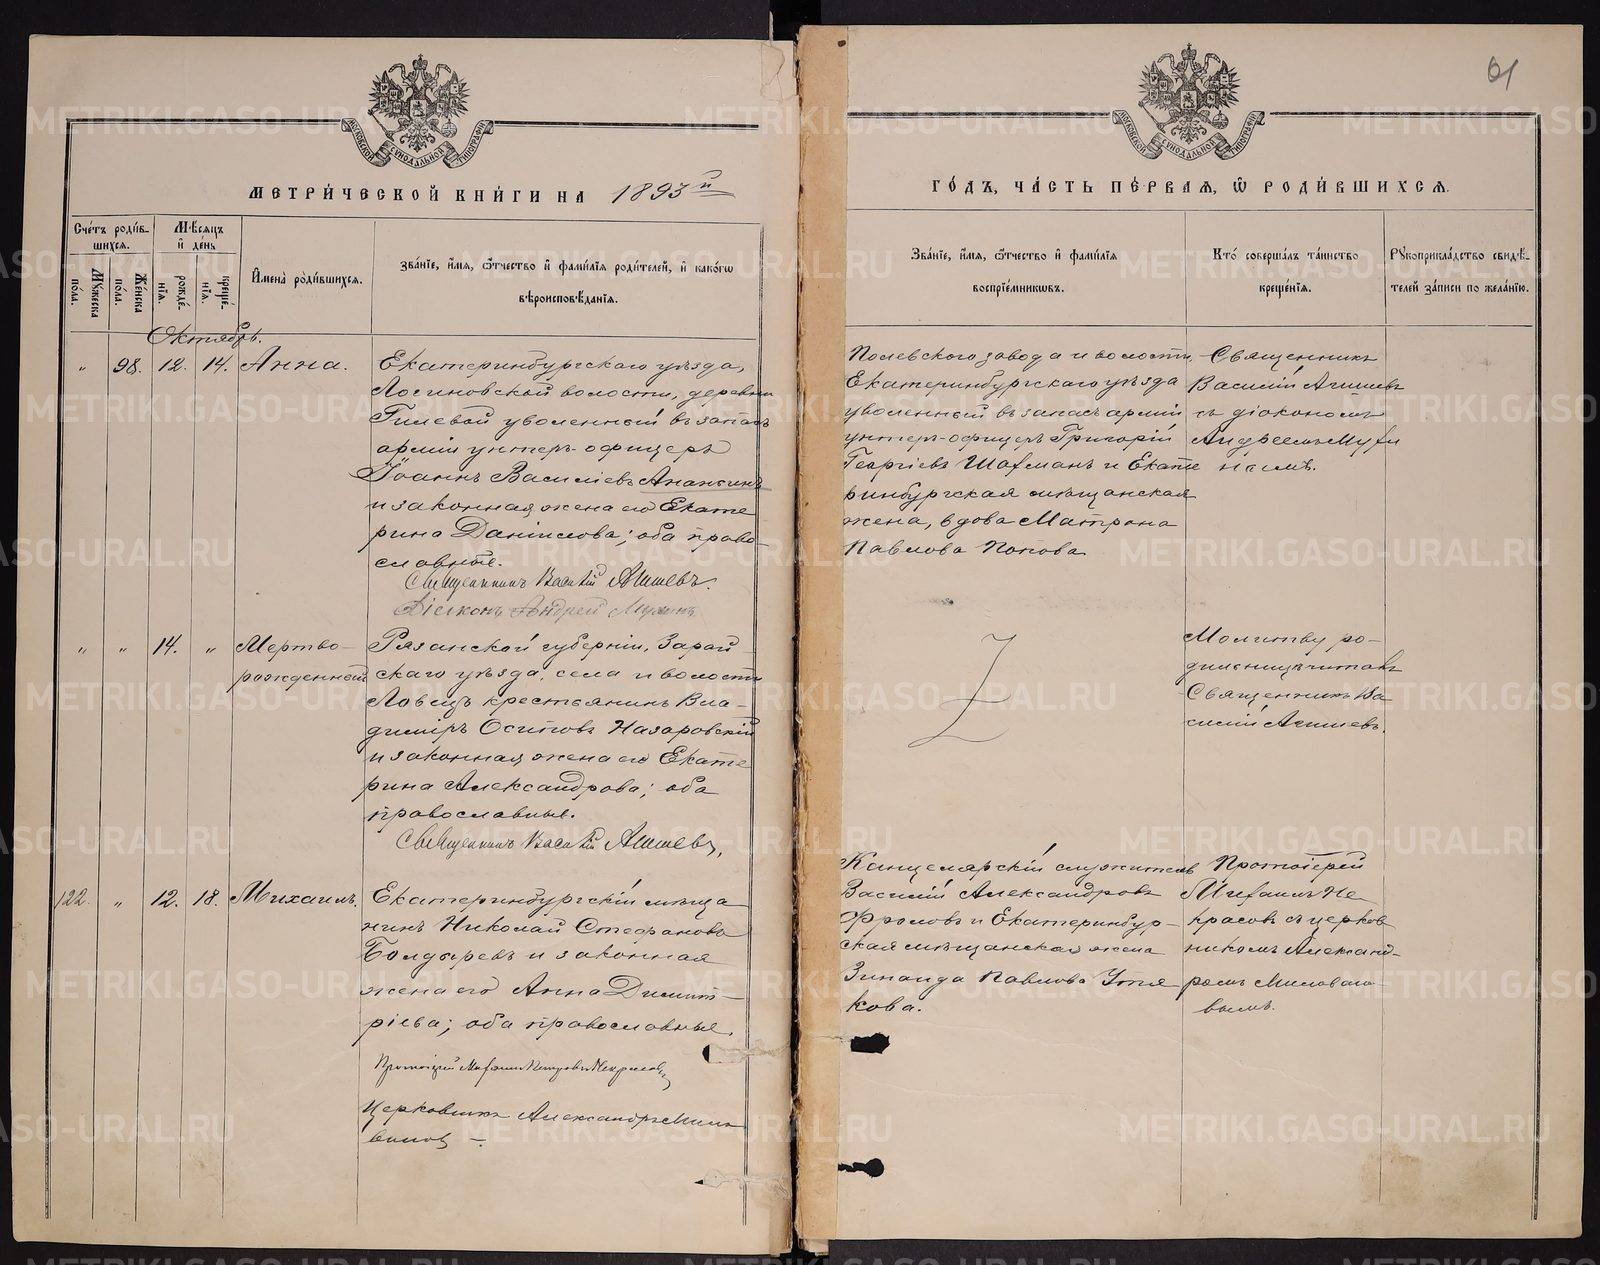 МЕТРИ́ЧЕСКОЙ КНИ́ГИ НА 1893й
Сче́тъ роди́в-
шихся.
Мѣ́сяцъ
и҆ де́нь
Мꙋ́жеска
по́ла.
Же́нска
по́ла.
рожде́-
нїѧ.
креще́-
нїѧ.
И҆мена̀ роди́вшихся.
Зва́нїе, и҆́мѧ, ѻ҆́тчество и҆ фами́лїѧ роди́телей, и҆ како́гѡ
вѣроисповѣ́данїѧ.
Октябрь.
" 98. 12. 14. Анна.
Екатеринбургскаго уѣзда,
Логиновской волости, деревни
Гилевой уволенный въ запасъ
арміи унтеръ-офицеръ
Іоаннъ Василіевъ Ананьинъ
и законная жена его Екате
рина Даніилова; оба право-
славные.
Священникъ Василій Агишевъ.
Діаконъ Андрей Мухинъ
" " 14. " Мертво-
рожденный
Рязанской губерніи, Зарай-
скаго уѣзда, села и волости
Ловецъ крестьянинъ Вла-
диміръ Осиповъ Назаровскій
и законная жена его Екате
рина Александрова; оба
православные.
Священникъ Василій Агишевъ,
122. " 12. 18. Михаилъ.
Екатеринбургскій мѣща
нинъ Николай Стефановъ
Болдыревъ и законная
жена его Анна Димит-
ріева; оба православные.
Протоіерей Михаилъ Некрасовъ
Церковникъ Александръ Мило
видовъ
61
ГО́ДЪ, ЧА́СТЬ ПЕ́РВАЯ, Ѽ РОДИ́ВШИХСЯ.
Зва́нїе, и҆́мѧ, ѻ҆́тчество и҆ фами́лїѧ
воспрїе́мникѡвъ.
Кто̀ соверша́лъ та́инство
креще́нїѧ.
Рꙋкоприкла́дство свидѣ́-
телей за́писи по жела́нїю.
Полевского завода и волости,
Екатеринбургскаго уѣзда
уволенный въ запасъ арміи
унтеръ-офицеръ Григорій
Георгіевъ Шахманъ и Екате
ринбургская мѣщанская
жена, вдова Матрона
Павлова Попова
Священникъ
Василій Агишевъ
съ діакономъ
Андреемъ Мухи
нымъ.
Молитву ро-
дильницѣ читалъ
Священникъ Ва
силій Агишевъ.
Канцелярскій служитель
Василій Александровъ
Фроловъ и Екатеринбур-
ская мѣщанская жена
Зинаида Павлова Утя
кова.
Протоіерей
Михаилъ Не
красовъ съ церков
никомъ Александ-
ромъ